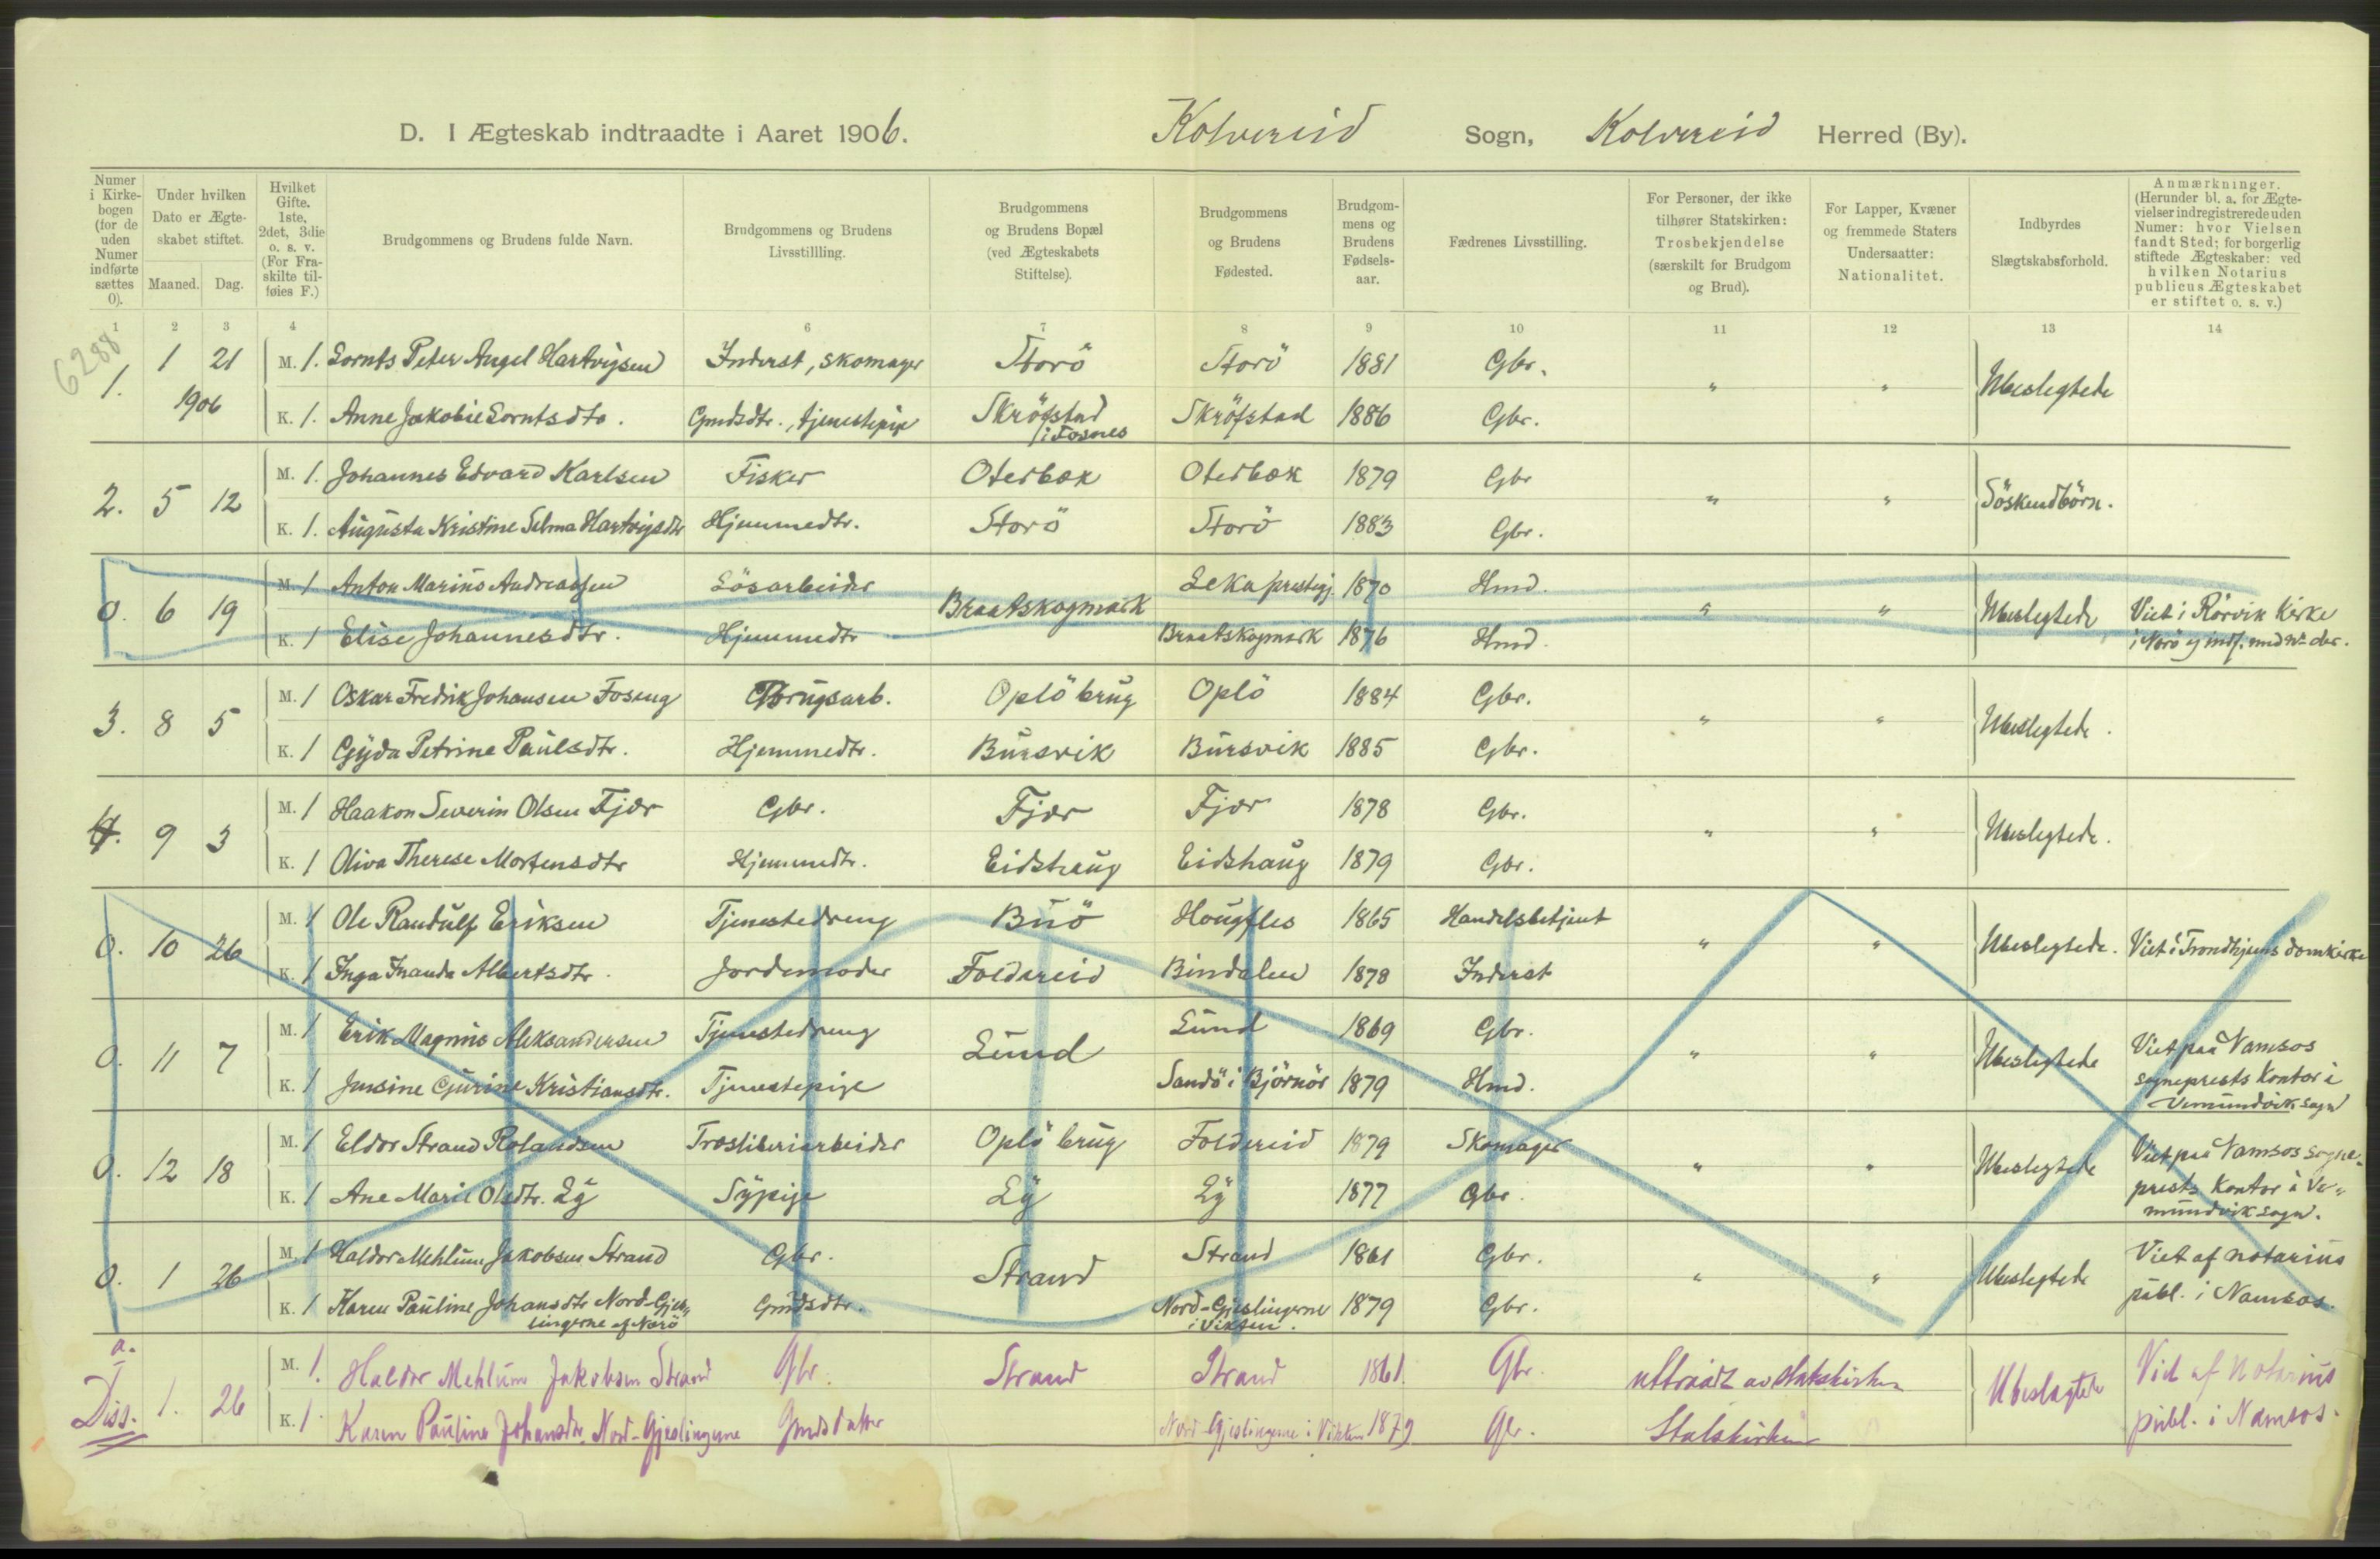 D. I Ægteskab indtraadte i Aaret 1906. Kolvereid Sogn, Kolvereid Herred (By).
Numer i Kirkebogen (for de uden Numer indførte sættes 0).
Under hvilken Dato er Ægteskabet stiftet.
Maaned. Dag.
Hvilket Gifte. 1ste, 2det, 3die o. s. v. (For Fraskilte tilføies F.)
Brudgommens og Brudens fulde Navn.
Brudgommens og Brudens Livsstillling.
Brudgommens og Brudens Bopæl (ved Ægteskabets Stiftelse).
Brudgommens og Brudens Fødested.
Brudgommens og Brudens Fødselsaar.
Fædrenes Livsstilling.
For Personer, der ikke tilhører Statskirken: Trosbekjendelse (særskilt for Brudgom og Brud).
For Lapper, Kvæner og fremmede Staters Undersaatter: Nationalitet.
Indbyrdes Slægtskabsforhold.
Anmærkninger. (Herunder bl. a. for Ægtevielser indregistrerede uden Numer: hvor Vielsen fandt Sted; for borgerlig stiftede Ægteskaber: ved hvilken Notarius publicus Ægteskabet er stiftet o. s. v.)
1 2 3 4 6 7 8 9 10 11 12 13 14
6288
1. 1 21 M. 1. Lornts Peter Angel Hartvigsen Inderst, skomager Storö Storö 1881 Gbr. " " Ubeslegtede
1906 K. 1. Anne Jakobie Lorntsdtr. Gmdsdtr., tjenestepige Skröfstad i Fosnes Skröfstad 1886 Gbr.
2. 5 12 M. 1. Johannes Edvard Karlsen Fisker Oterbæk Oterbæk 1879 Gbr " " Söskendbörn.
K. 1. Augusta Kristine Selma Hartvigsdtr Hjemmedtr. Storö Storö 1883 Gbr.
0. 6 19 M. 1 Anton Marius Andreassen Lösarbeider Braatskogmark Leka prestegj. 1870 Hmd. " " Ubeslegtede Viet i Rörvik Kirke
K. 1 Elise Johannesdtr. Hjemmedtr Braatskogmark 1876 Hmd. i Nærö og indf. med No der.
3. 8 5 M. 1 Oskar Fredrik Johansen Foseng Brugsarb. Oplö brug Oplö 1884 Gbr. " " Ubeslegtede.
K. 1 Gyda Petrine Paulsdtr. Hjemmedtr. Bursvik Bursvik 1885 Gbr.
4. 9 3 M. 1 Haakon Severin Olsen Fjær Gbr. Fjær Fjær 1878 Gbr. " " Ubeslegtede.
K. 1 Oliva Therese Mortensdtr Hjemmedtr. Eidshaug Eidshaug 1879 Gbr.
0. 10 26 M. 1 Ole Randulf Eriksen Tjenestedreng Buö Hougfles 1865 Handelsbetjent " " Ubeslegtede. Viet i Trondhjems domkirke
K. 1 Inga Inanda Albertsdtr. Jordemoder Foldereid Bindalen 1878 Inderst
0. 11 7 M. 1 Erik Magnus Aleksandersen Tjenestedreng Lund Lund 1869 Gbr. " " Ubeslegtede Viet paa Namsos
K. 1 Jensine Gurine Kristiansdtr. Tjenestepige Sandö i Björnör 1879 Hmd. sogneprests Kontor i
Vemundvik sogn
0. 12 18 M. 1 Eldor Strand Rolandsen Træsliberiarbeider Oplö brug Foldereid 1879 Skomager " " Ubeslegtede Viet paa Namsos sogne-
K. 1 Ane Marie Olsdtr. Ly Sypige Ly Ly 1877 Gbr. prests Kontor i Ve-
mundvik sogn.
0. 1 26 M. 1 Haldor Mehlum Jakobsen Strand Gbr. Strand Strand 1861 Gbr. " " Ubeslegtede Viet af notarius
K. 1 Karen Pauline Johansdtr Nord-Gjes-
lingerne af Nærö Gmdsdtr. Nord-Gjeslingerne i Vikten. 1879 Gbr. publ. i Namsos.
a.
Diss. 1. 26 M. 1. Haldor Mehlum Jakobsen Strand Gbr. Strand Strand 1861. Gbr. uttraadt av Statskirken Ubeslegtede Viet af Notarius
K. 1. Karen Pauline Johansdtr. Nord-Gjeslingerne Gmdsdatter Nord-Gjeslingerne i Vikten 1879 Gbr. Statskirken publ. i Namsos.